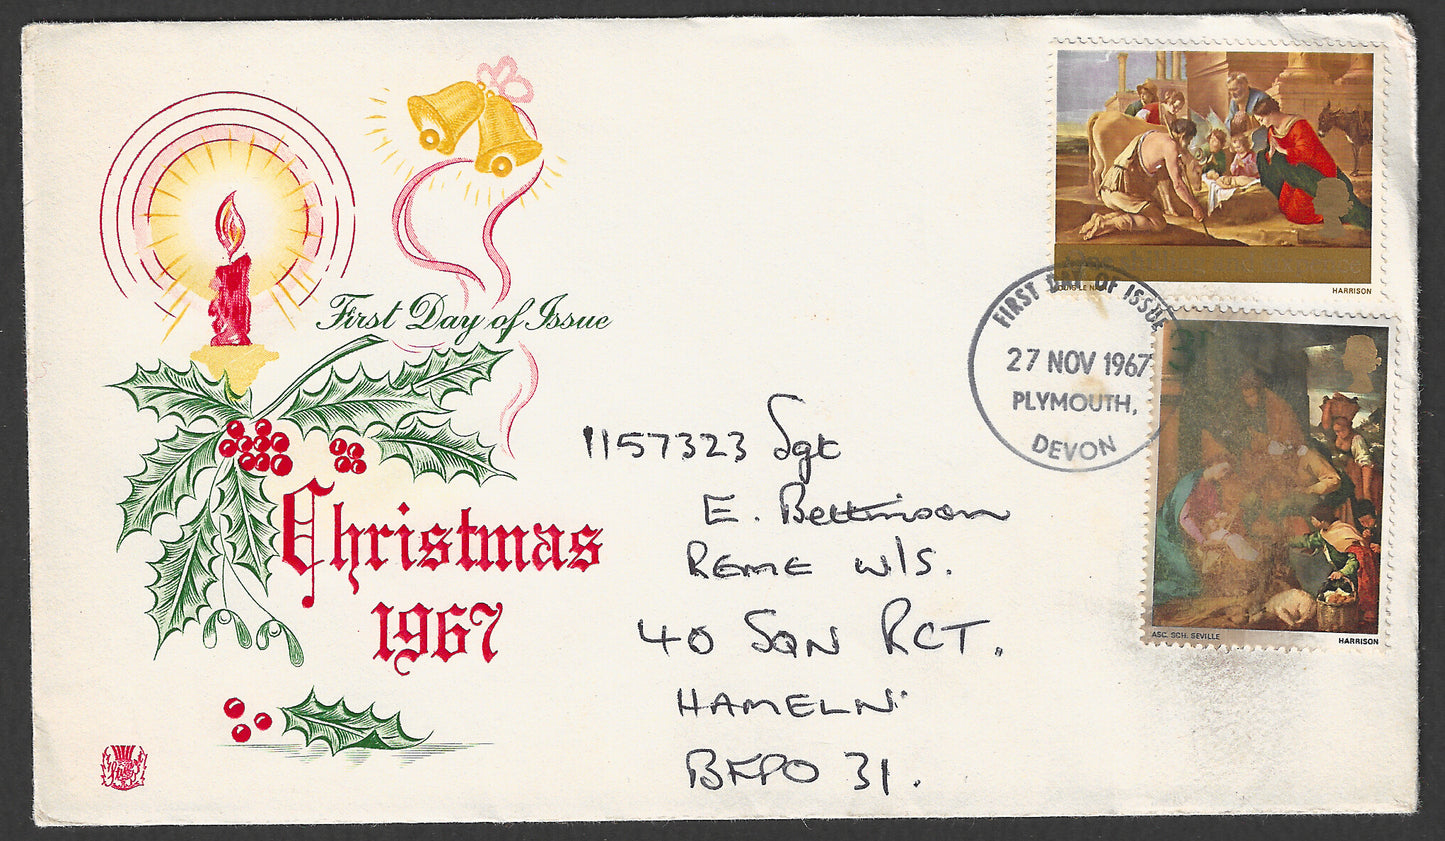 First Day of Issue
Christmas
1967
LOUIS LE NAIN
HARRISON
FIRST DAY OF ISSUE
27 NOV 1967
PLYMOUTH,
DEVON
ASC. SCH. SEVILLE
HARRISON
1157323 Sgt
E. Bettinson
REME W/S.
40 SQN RCT.
HAMELN.
BFPO 31.